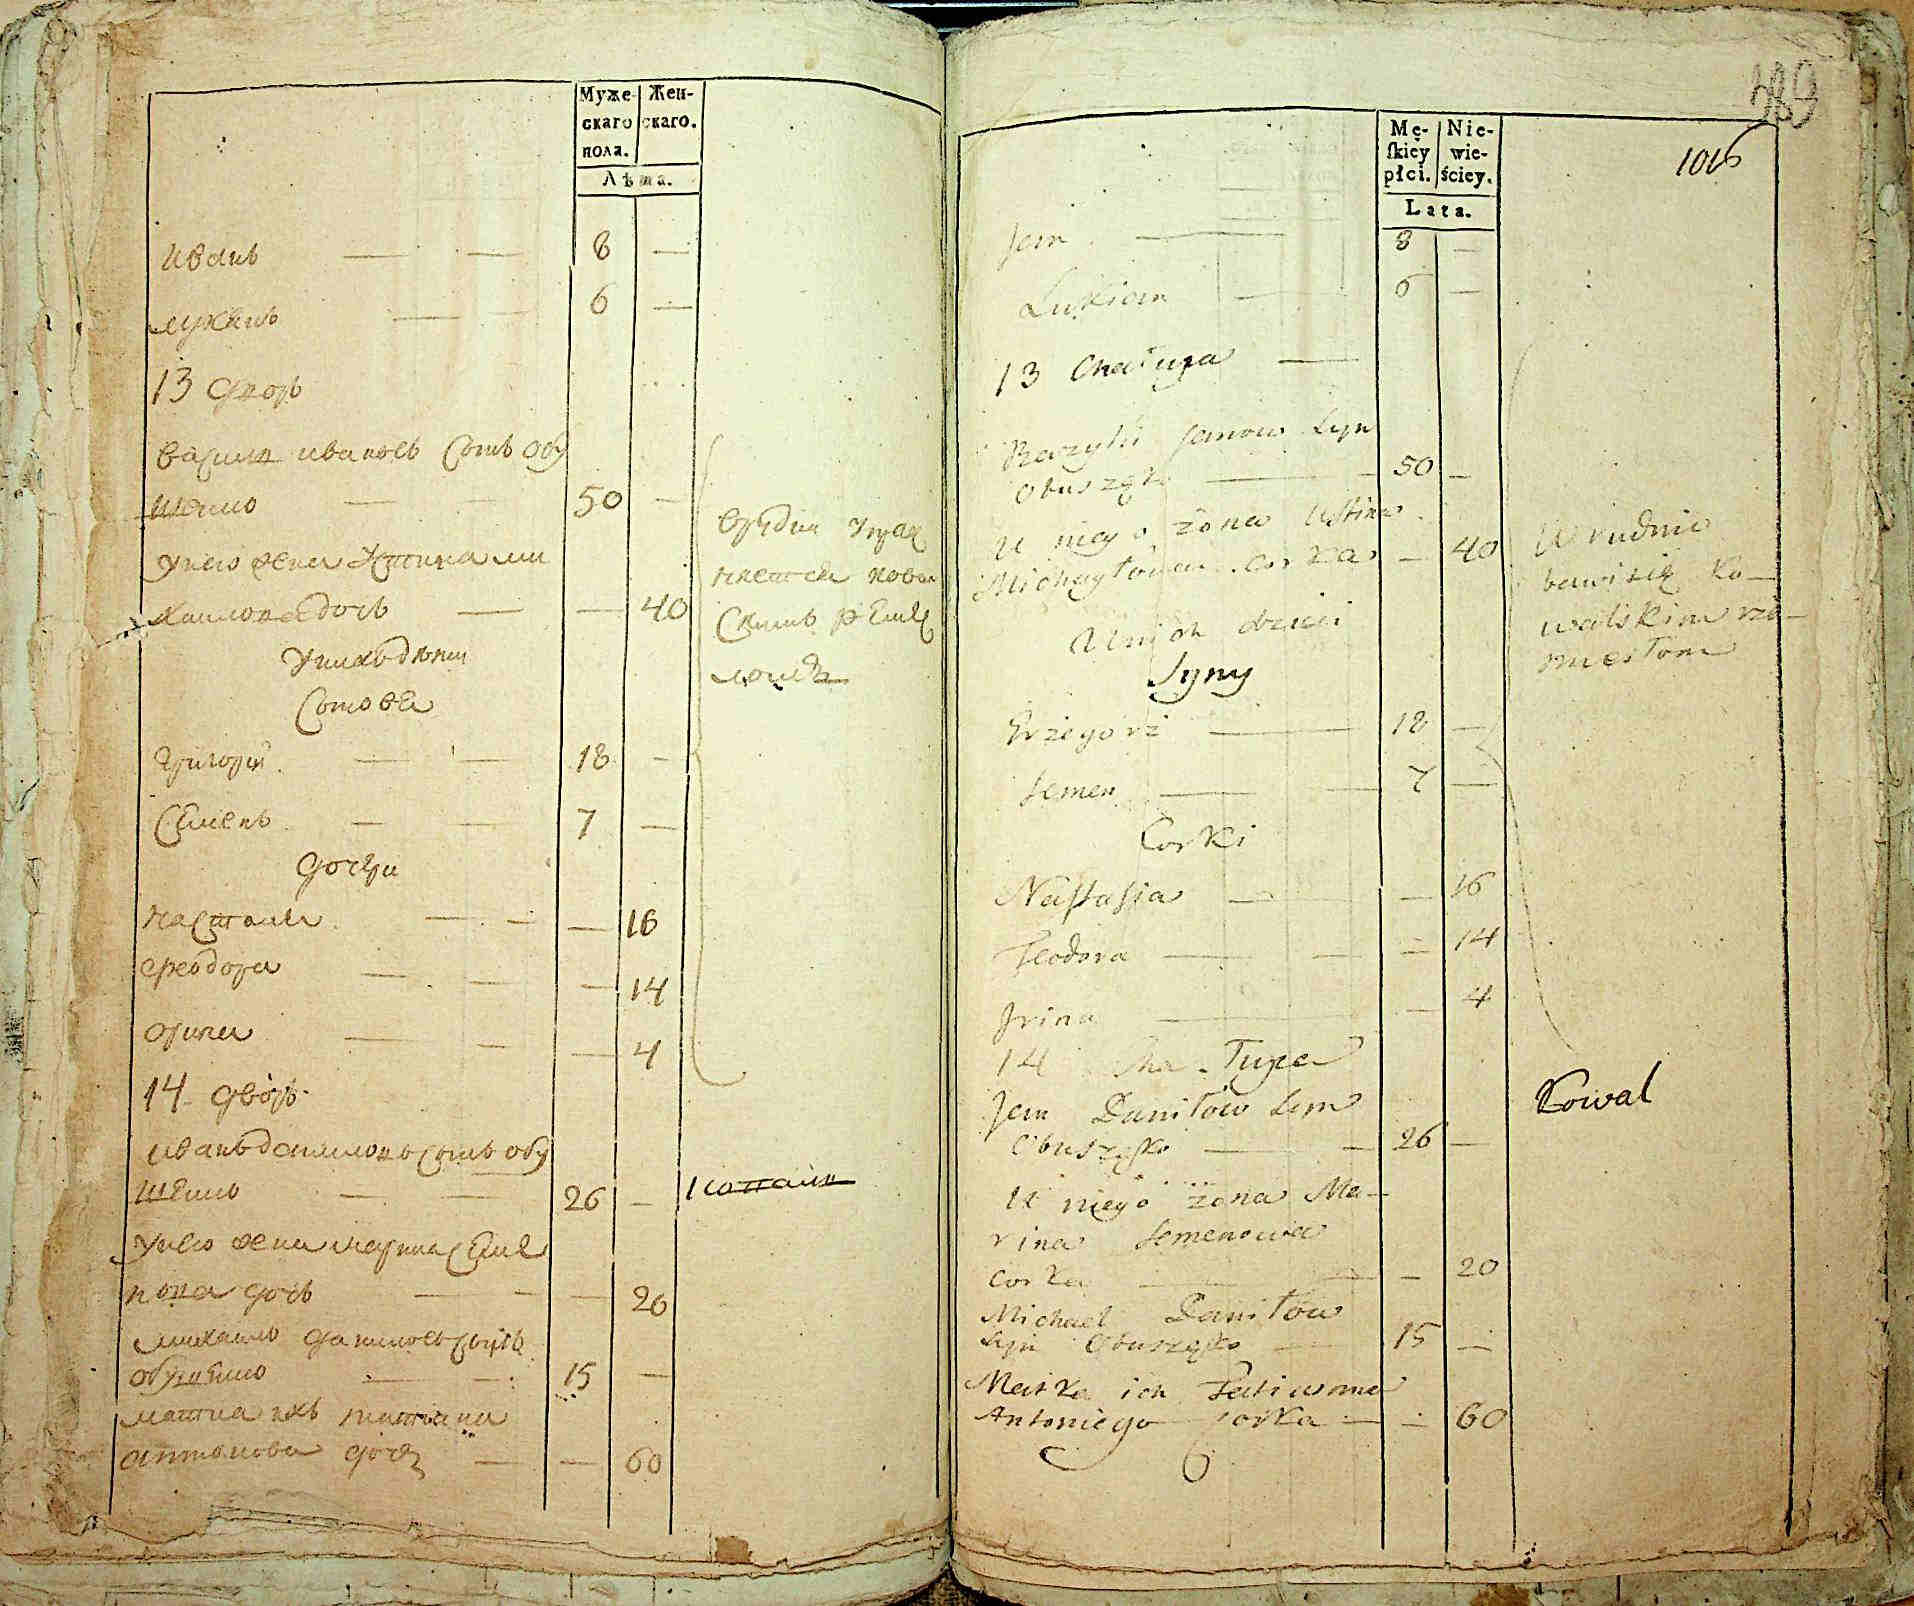 Муже-
скаго
пола.
Жен-
скаго.
Лѣта.
Иванъ — — 8 —
Лукянъ — — 6 —
13 Дворъ
Василий Ивановъ Сынъ Обу
шенко — — 50 —
Унего жена Устина Ми
хайлова дочь — — 40
Унихъ дети
Сынове
Григорий — — 18 —
Семенъ — — 7 —
Дочери
Настасия — — — 16
Феодора — — — 14
Орина — — — 4
14 Дворъ
Иванъ Даниловъ Сынъ Обу
шенко — — 26 —
Унего жена Марина Семе
нова дочь — — — 20
Михайло Даниловъ Сынъ
Обушенко — — 15 —
Матка ихъ Татиана
Антонова дочь — — 60
Mę-
ſkiey
płci.
Nie-
wie-
ściey.
Lata.
389
1016
Jan — 8 —
Lukian — 6 —
13 Chałupa —
Bazyli Janow Syn
Obuszęko — 50 —
U niego żona Ustina
Michayłowa Corka — 40
U nich dzieci
Syny
Grzegorz — 18 —
Semen — — 7 —
Corki
Nastasja — — 16
Teodora — — — 14
Irina — — 4
14 Chałupa
Jan Daniłow Syn
Obuszęko — — 26 —
U niego żona Ma-
rina Semenowa
corka — — — 20
Michael Daniłow
Syn Obuszęko — 15 —
Matka ich Tatianna
Antoniego Corka — — 60
W rudni
bawi się ko-
walskim rze-
miesłom
Kowal